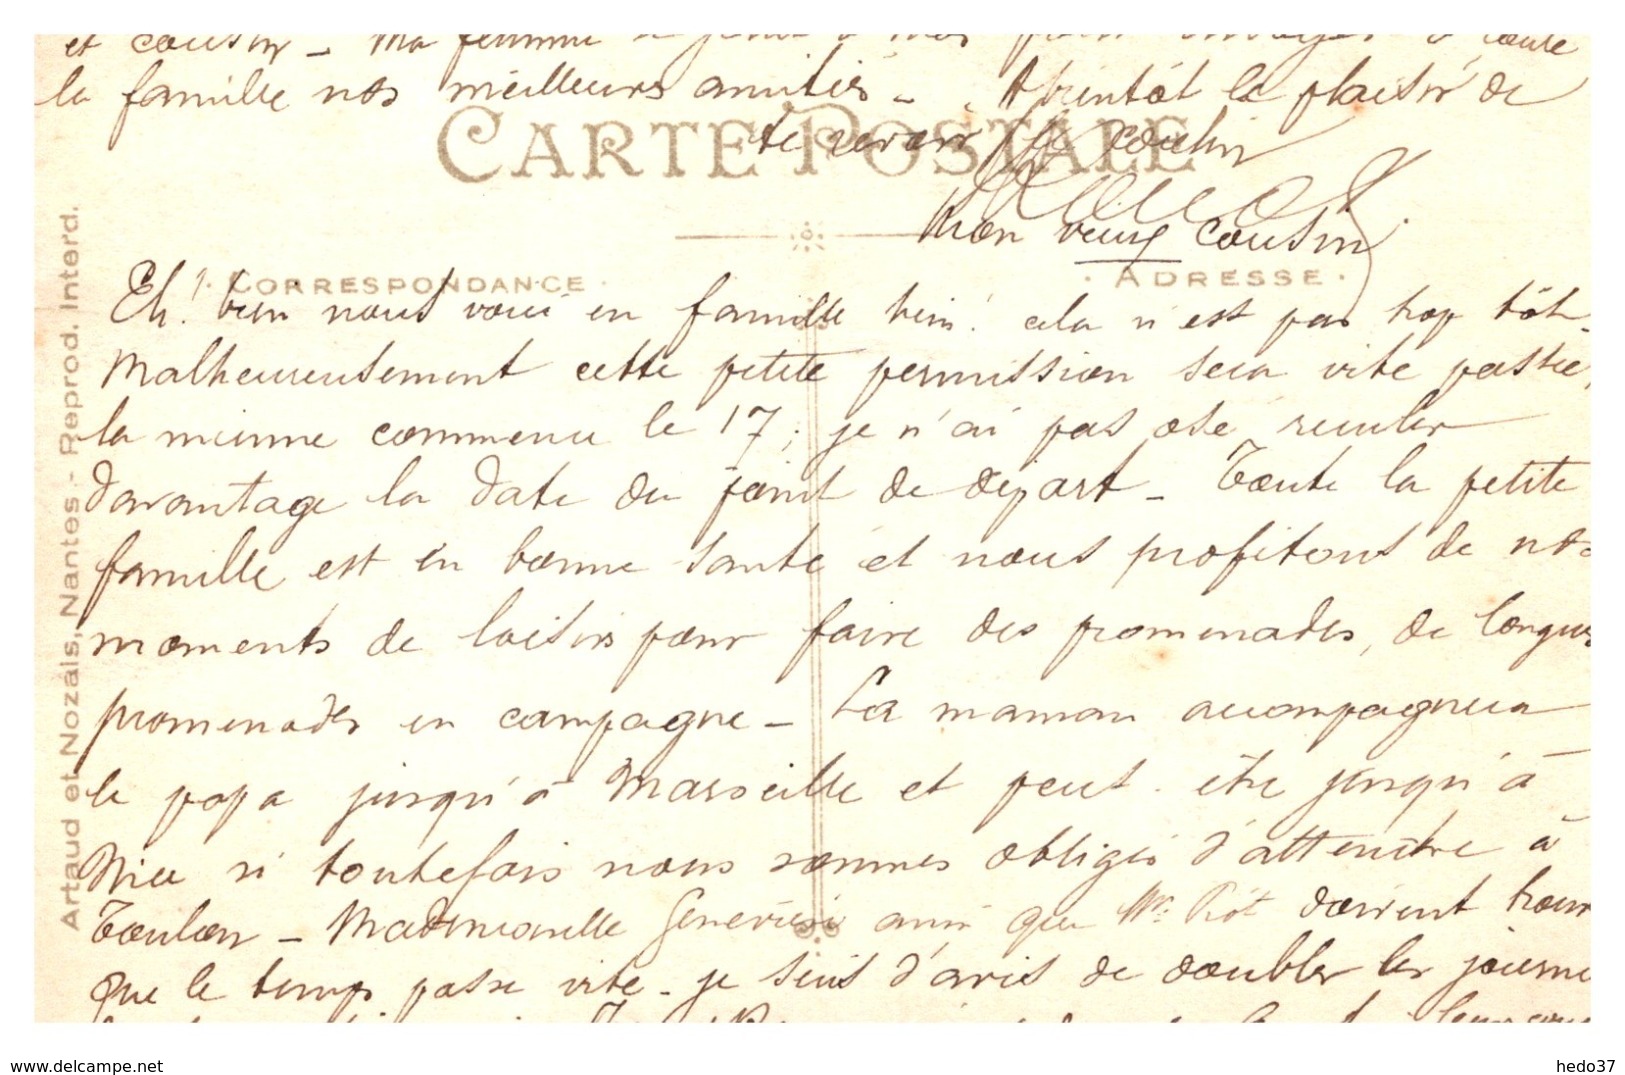 et cousin - Ma femme se joint à moi pour envoyer à toute
la famille nos meilleurs amitiés - A bientôt le plaisir de
te revoir ton cousin
CARTE POSTALE
Mon vieux cousin
CORRESPONDANCE
ADRESSE
Eh! bien nous voici en famille hein! cela n'est pas trop tôt.
Malheureusement cette petite permission sera vite passée,
la mienne commence le 17; je n'ai pas osé reculer
davantage la date du jour de départ - Toute la petite
famille est en bonne santé et nous profitons de nos
moments de loisirs pour faire des promenades, de longues
promenades en campagne - La maman accompagnera
le papa jusqu'à Marseille et peut-être jusqu'à
Nice si toutefois nous sommes obligés d'attendre à
Toulon - Mademoiselle Geneviève ainsi que Mr. Piot doivent trouver
que le temps passe vite - je suis d'avis de doubler les journées
Artaud et Nozais, Nantes - Reprod. Interd.
hedo37